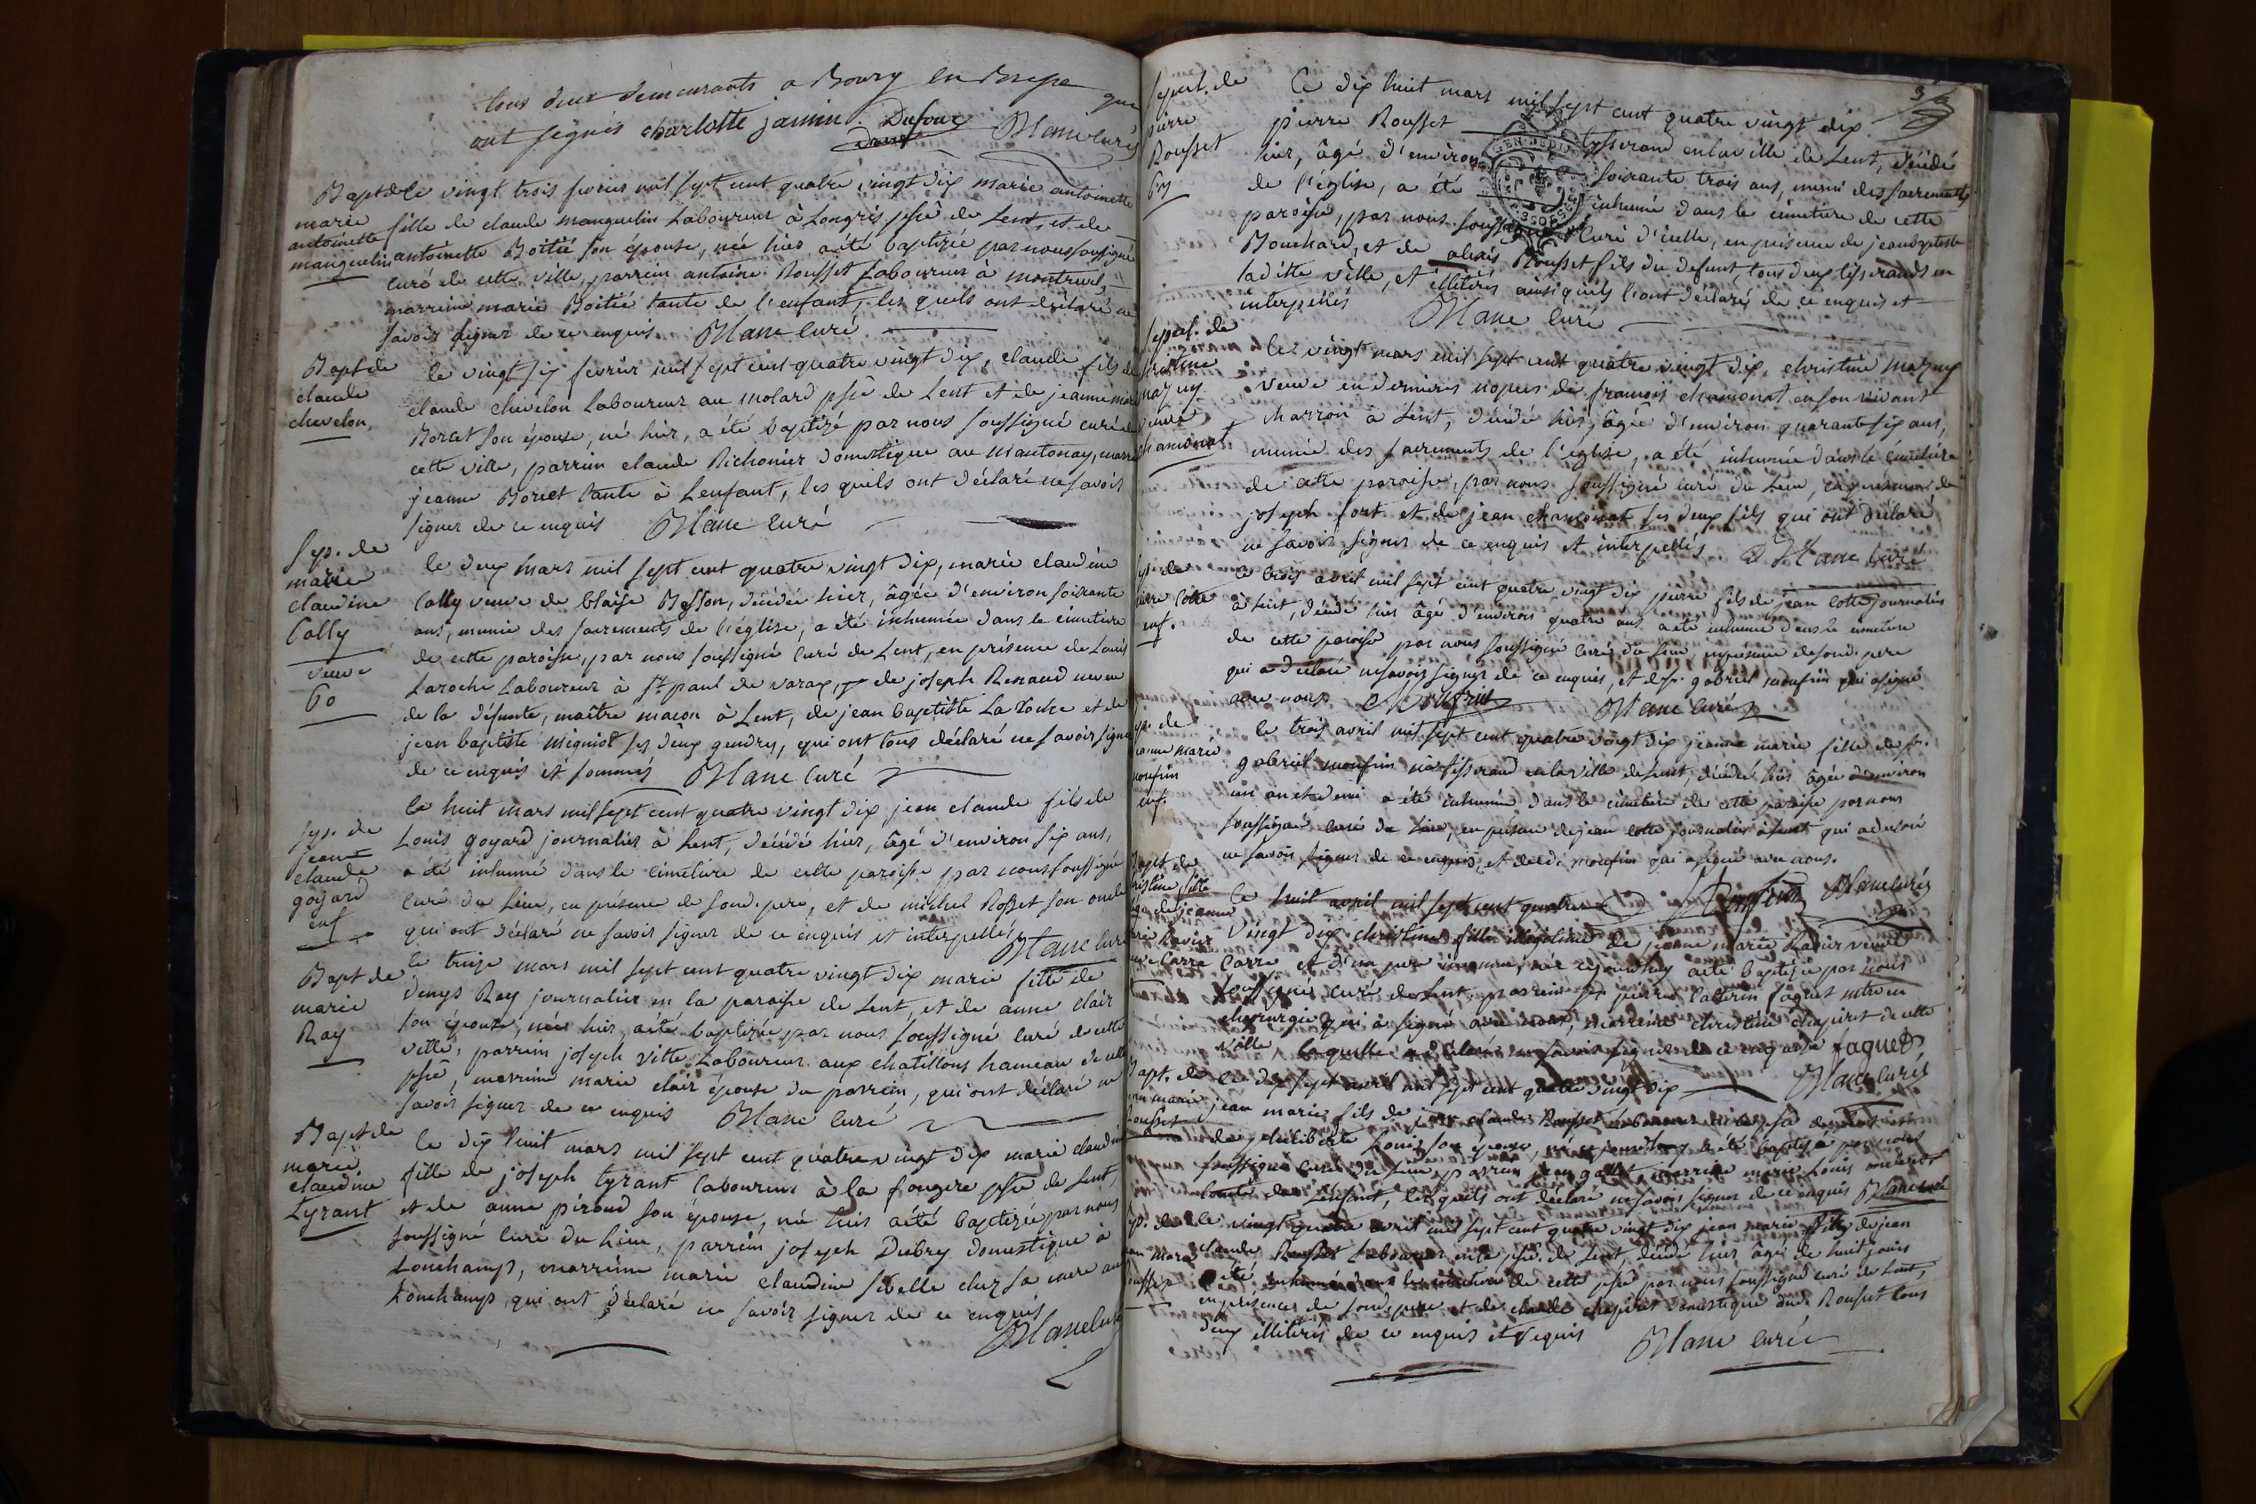 tous deux demeurants a Bourg en Bresse qui
ont signés charlotte jannin. Dufour Blanc curé
Bapt de
marie
antoinette
manguelin
le vingt trois fevrier mil sept cent quatre vingt dix marie antoinette
fille de claude manguelin Laboureur à Longris psse de Lent, et de
antoinette Boitié son épouse, née hier a été baptizée par nous soussigné
curé de cette ville, parrein antoine Rousset Laboureur à montreul,
marreine marie Boitié tante de l'enfant, les quels ont déclaré ne
savoir signer de ce enquis. Blanc curé
Bapt de
claude
chevelon.
le vingt six fevrier mil sept cent quatre vingt dix, claude fils de
claude chevelon Laboureur au molard psse de Lent et de jeanne marie
Borcet son épouse, né hier, a été baptizé par nous soussigné curé de
cette ville, parrein claude Richonier domestique au mautonay, marreine
jeanne Borcet tante à Lenfant, les quels ont déclaré ne savoir
signer de ce enquis Blanc curé
Sep. de
marie
claudine
Colly
veuve
60
le deux mars mil sept cent quatre vingt dix, marie claudine
Colly veuve de blaise Besson, décédée hier, âgée d'environ soixante
ans, munie des sacrements de l'église, a été inhumée dans le cimetiere
de cette paroisse, par nous soussigné curé de Lent, en présence de Louis
Laroche Laboureur à st paul de varax, de joseph Renaud neveu
de la défunte, maître maçon à Lent, de jean baptiste La roche et de
jean baptiste mégniot ses deux gendres, qui ont tous déclaré ne savoir signer
de ce enquis et sommés Blanc curé
Sep. de
jean
claude
goyard
enf.
le huit mars mil sept cent quatre vingt dix jean claude fils de
Louis goyard journalier à Lent, décédé hier, âgé d'environ six ans,
a été inhumé dans le cimetiere de cette paroisse par nous soussigné
curé du Lieu, en présence de sond. pere, et de michel Rosset son oncle
qui ont déclaré ne savoir signer de ce enquis et interpellés
Blanc curé
Bapt de
marie
Ray
le treize mars mil sept cent quatre vingt dix marie fille de
denys Ray journalier en la paroisse de Lent, et de anne clair
son épouse, née hier, a été baptizée par nous soussigné curé de cette
ville, parrein joseph vitte Laboureur aux chatillons hameau de cette
psse, marreine marie clair épouse du parrein, qui ont déclaré ne
savoir signer de ce enquis Blanc curé
Bapt de
marie
claudine
Tyrant
le dix huit mars mil sept cent quatre vingt dix marie claudine
fille de joseph tyrant laboureur à la fougere psse de Lent,
et de anne péroud son épouse, né hier a été baptizée par nous
soussigné curé du Lieu, parrein joseph Dubrey domestique à
Lonchamp, marreine marie claudine sibelle chez sa mere au
Lonchamp, qui ont déclaré ne savoir signer de ce enquis
Blanc curé
Sepul. de
pierre
Rousset
63
le dix huit mars mil sept cent quatre vingt dix
pierre Rousset tisserand en la ville de Lent, décédé
hier, âgé d'environ soixante trois ans, muni des sacrements
de l'église, a été inhumé dans le cimetiere de cette
paroisse, par nous soussigné curé d'icelle, en présence de jean baptiste
Bouchard, et de alexis Rousset fils du defunt tous deux tisserands en
ladite ville, et illiterés ainsi qu'ils l'ont déclaré de ce enquis et
interpellés Blanc curé
Sepul. de
christine
mazuy
veuve
chamonat
le vingt mars mil sept cent quatre vingt dix, christine mazuy
veuve en dernieres nopces de françois chamonat en son vivant
charron à Lent, décédé hier, âgée d'environ quarante six ans,
munie des sacrements de l'eglise, a été inhumée dans le cimetiere
de cette paroisse, par nous soussigné curé du Lieu, en présence de
joseph fort et de jean chamonat ses deux fils qui ont déclaré
ne savoir signer de ce enquis et interpellés Blanc curé
Sep. de
pierre Cotte
enf.
le trois avril mil sept cent quatre vingt dix pierre fils de jean cotte journalier
à Lent, décédé hier âgé d'environ quatre ans a été inhumé dans le cimetiere
de cette paroisse par nous soussigné curé du Lieu, en présence de sond. pere
qui a déclaré ne savoir signer de ce enquis, et de sr gabriel monfrin qui a signé
avec nous Monfrin Blanc curé
Sep. de
jeanne marie
monfrin
enf.
le trois avril mil sept cent quatre vingt dix jeanne marie fille de sr.
gabriel monfrin tisserand en la ville de Lent, décédée hier âgée d'environ
un an et demi a été inhumée dans le cimetiere de cette paroisse par nous
soussigné curé du Lieu, en présence de jean cotte journalier à Lent qui a déclaré
ne savoir signer de ce enquis, et dud. monfrin qui a signé avec nous.
Monfrin Blanc curé
Bapt de
christine fille
de jeanne
marie Lavier
veuve Carre
le huit avril mil sept cent quatre
vingt dix christine fille illégitime de jeanne marie Lavier veuve
Carre et d'un pere inconnu, née cejourdhuy a été baptizée par nous
soussigné curé de Lent, parrein sr pierre faguet mtre en
chirurgie qui a signé avec nous, marreine christine chapiret de cette
ville laquelle a déclaré ne savoir signer de ce enquise faguet
Blanc curé
Bapt. de
jean marie
Rousset
le dix sept avril mil sept cent quatre vingt dix
jean marie fils de jean claude Rousset laboureur
de philiberte Louis son épouse, né cejourdhuy a été baptizé par nous
soussigné curé du Lieu, parrein jean gallet marreine marie Louis
tante de Lenfant, les quels ont déclaré ne savoir signer de ce enquis Blanc curé
Sep. de
jean marie
Rousset
le vingt quatre avril mil sept cent quatre vingt dix jean marie fils de jean
claude Rousset Laboureur en la psse de Lent, décédé hier âgé de huit jours
a été inhumé dans le cimetiere de cette psse par nous soussigné curé de Lent,
en présence de sond. pere et de claude chapiret domestique dud. Rousset tous
deux illiterés de ce enquis et requis Blanc curé